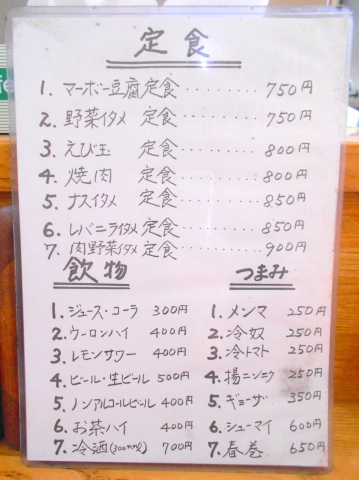 定食
1. マーボー豆腐定食・・・・・・・・・750円
2. 野菜イタメ 定食・・・・・・・・・750円
3. えび玉 定食・・・・・・・・・800円
4. 焼肉 定食・・・・・・・・・800円
5. ナスイタメ 定食・・・・・・・・・850円
6. レバニライタメ 定食・・・・・・・・・850円
7. 肉野菜イタメ 定食・・・・・・・・・900円
飲物
1. ジュース・コーラ 300円
2. ウーロンハイ 400円
3. レモンサワー 400円
4. ビール・生ビール 500円
5. ノンアルコールビール 400円
6. お茶ハイ 400円
7. 冷酒(300ml) 700円
つまみ
1. メンマ 250円
2. 冷奴 250円
3. 冷トマト 250円
4. 揚ニンニク 250円
5. ギョーザ 350円
6. シューマイ 600円
7. 春巻 650円